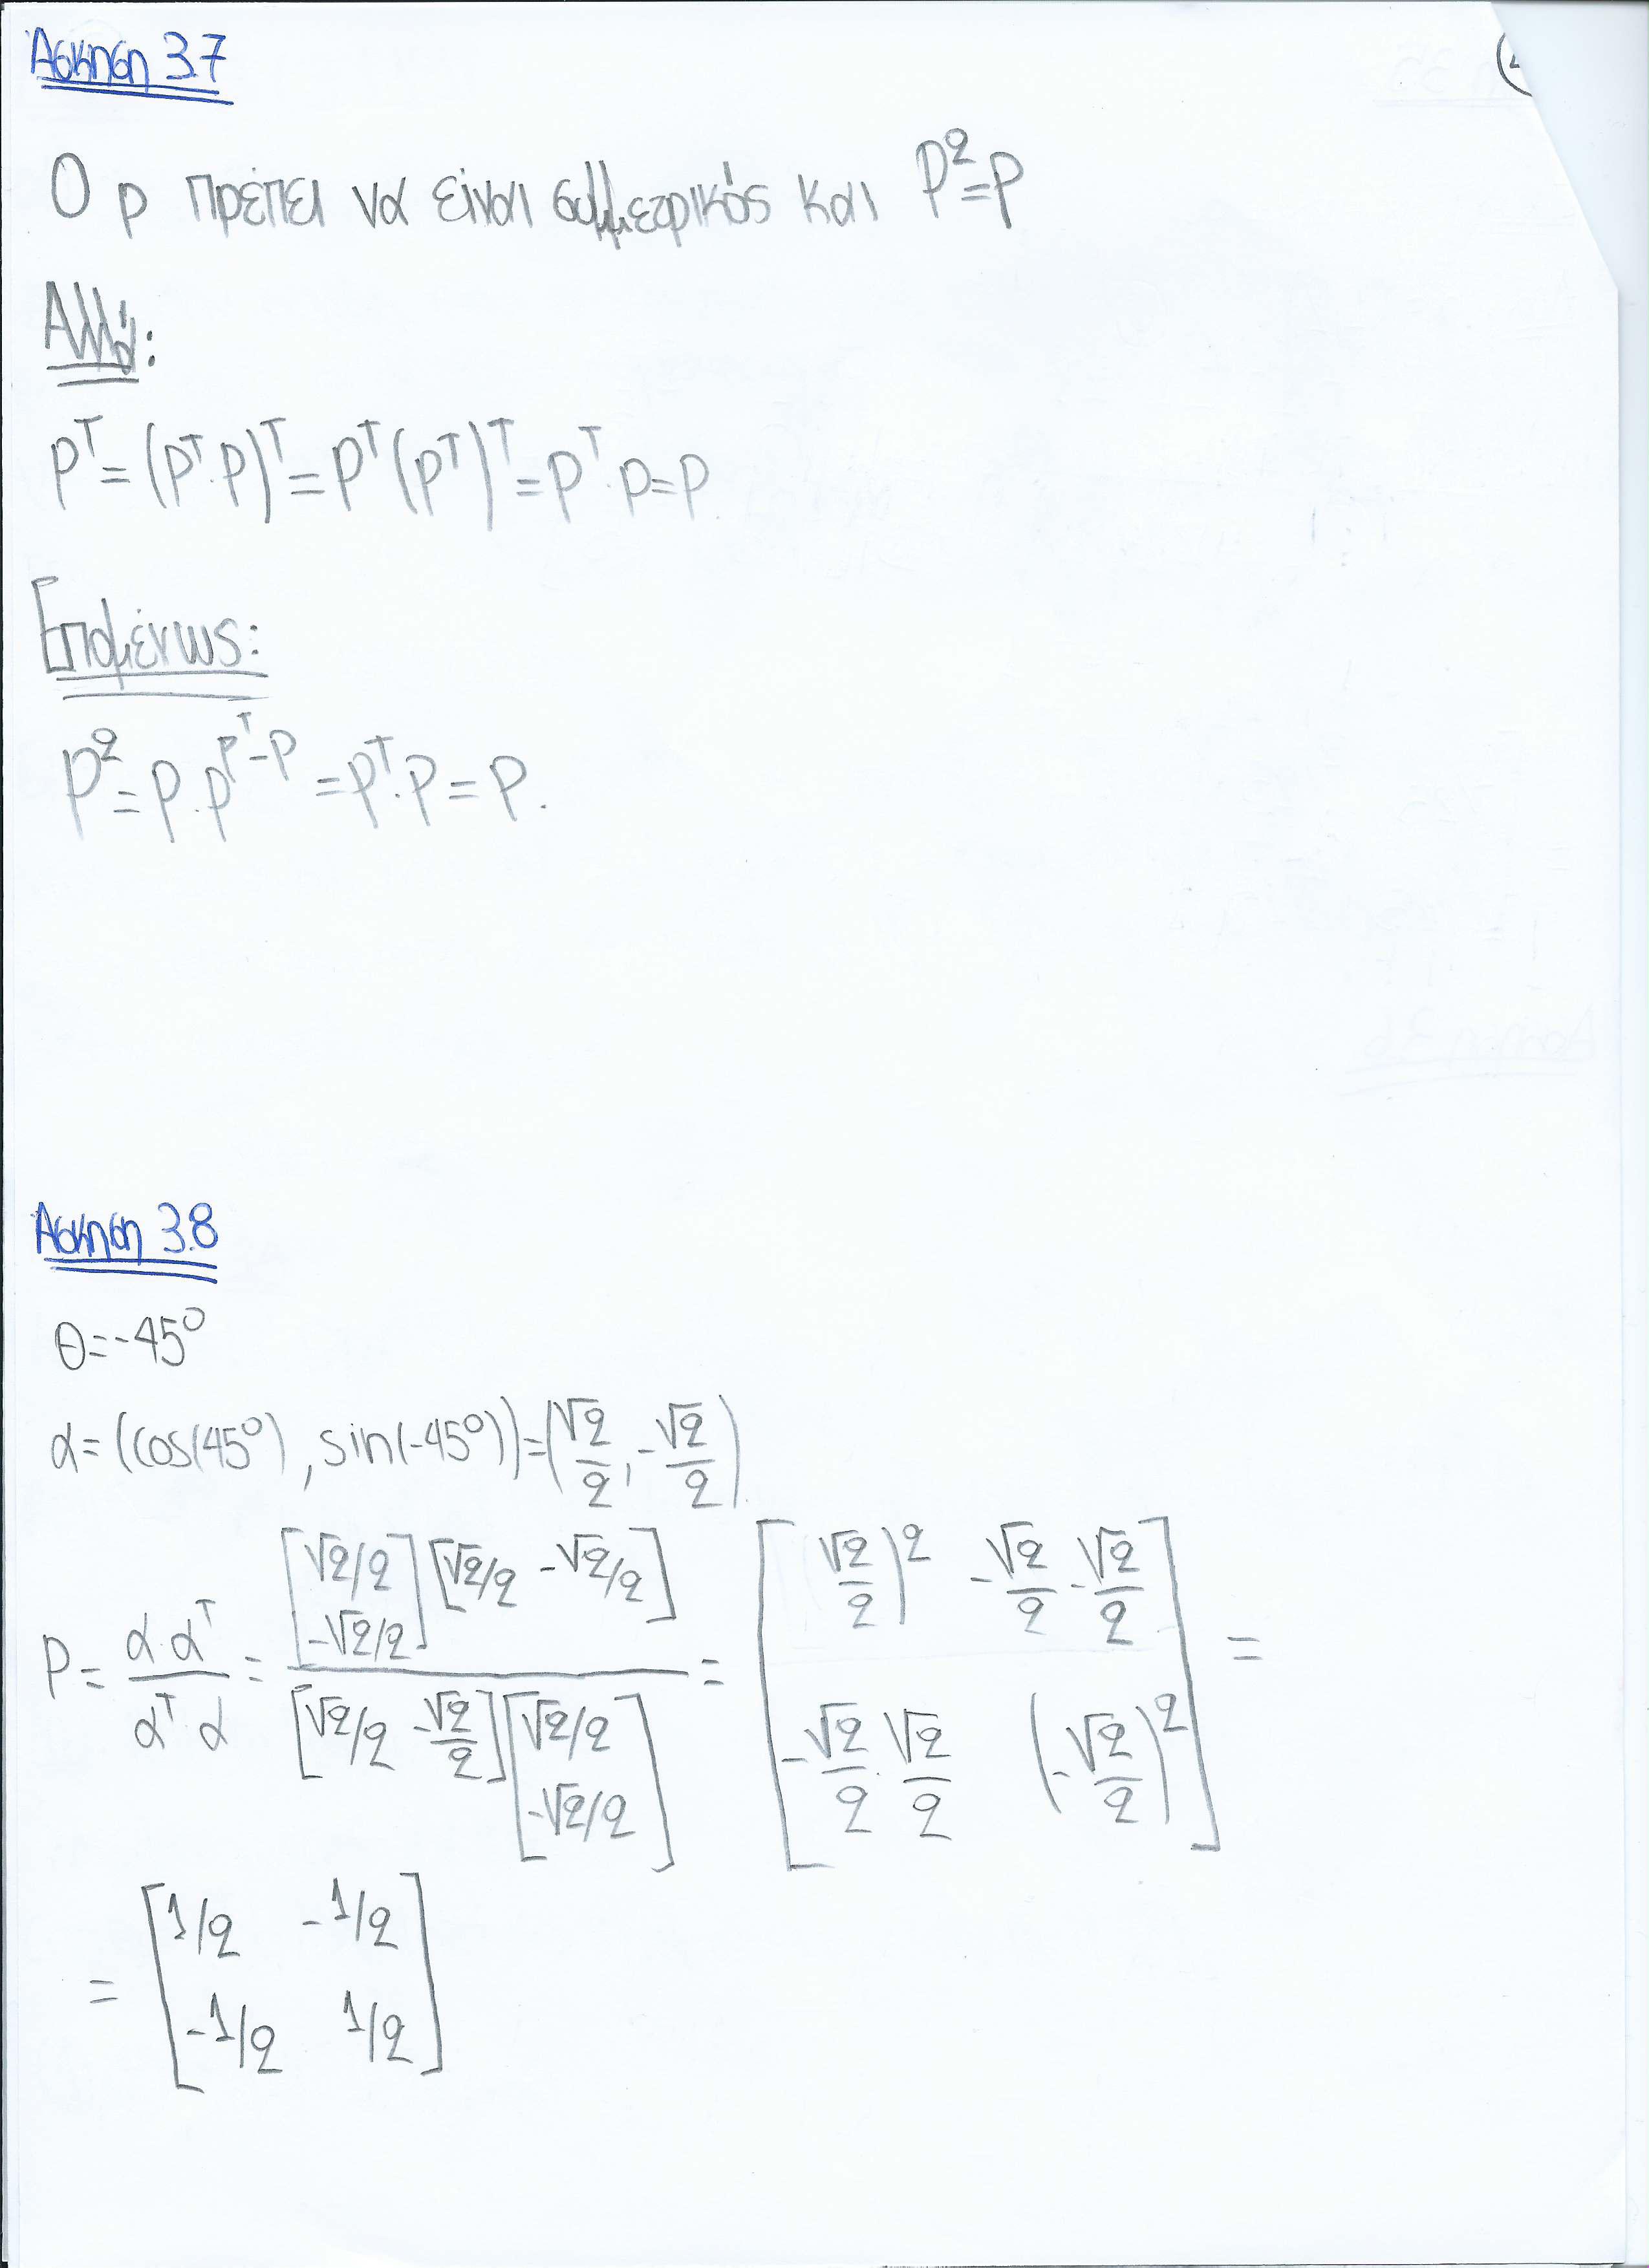 Άσκηση 3.7
Ο P πρέπει να είναι συμμετρικός και P²=P
Αλλά:
Pᵀ=(Pᵀ·P)ᵀ=Pᵀ(Pᵀ)ᵀ=Pᵀ·P=P
Επομένως:
P²=P·P^(Pᵀ=P)=Pᵀ·P=P.
Άσκηση 3.8
θ=-45°
α=(cos(45°), sin(-45°))=(√2/2, -√2/2)
P= α·αᵀ/αᵀα = [√2/2; -√2/2][√2/2 -√2/2] / [√2/2 -√2/2][√2/2; -√2/2] = [(√2/2)² -√2/2·√2/2; -√2/2·√2/2 (-√2/2)²] =
= [1/2 -1/2; -1/2 1/2]